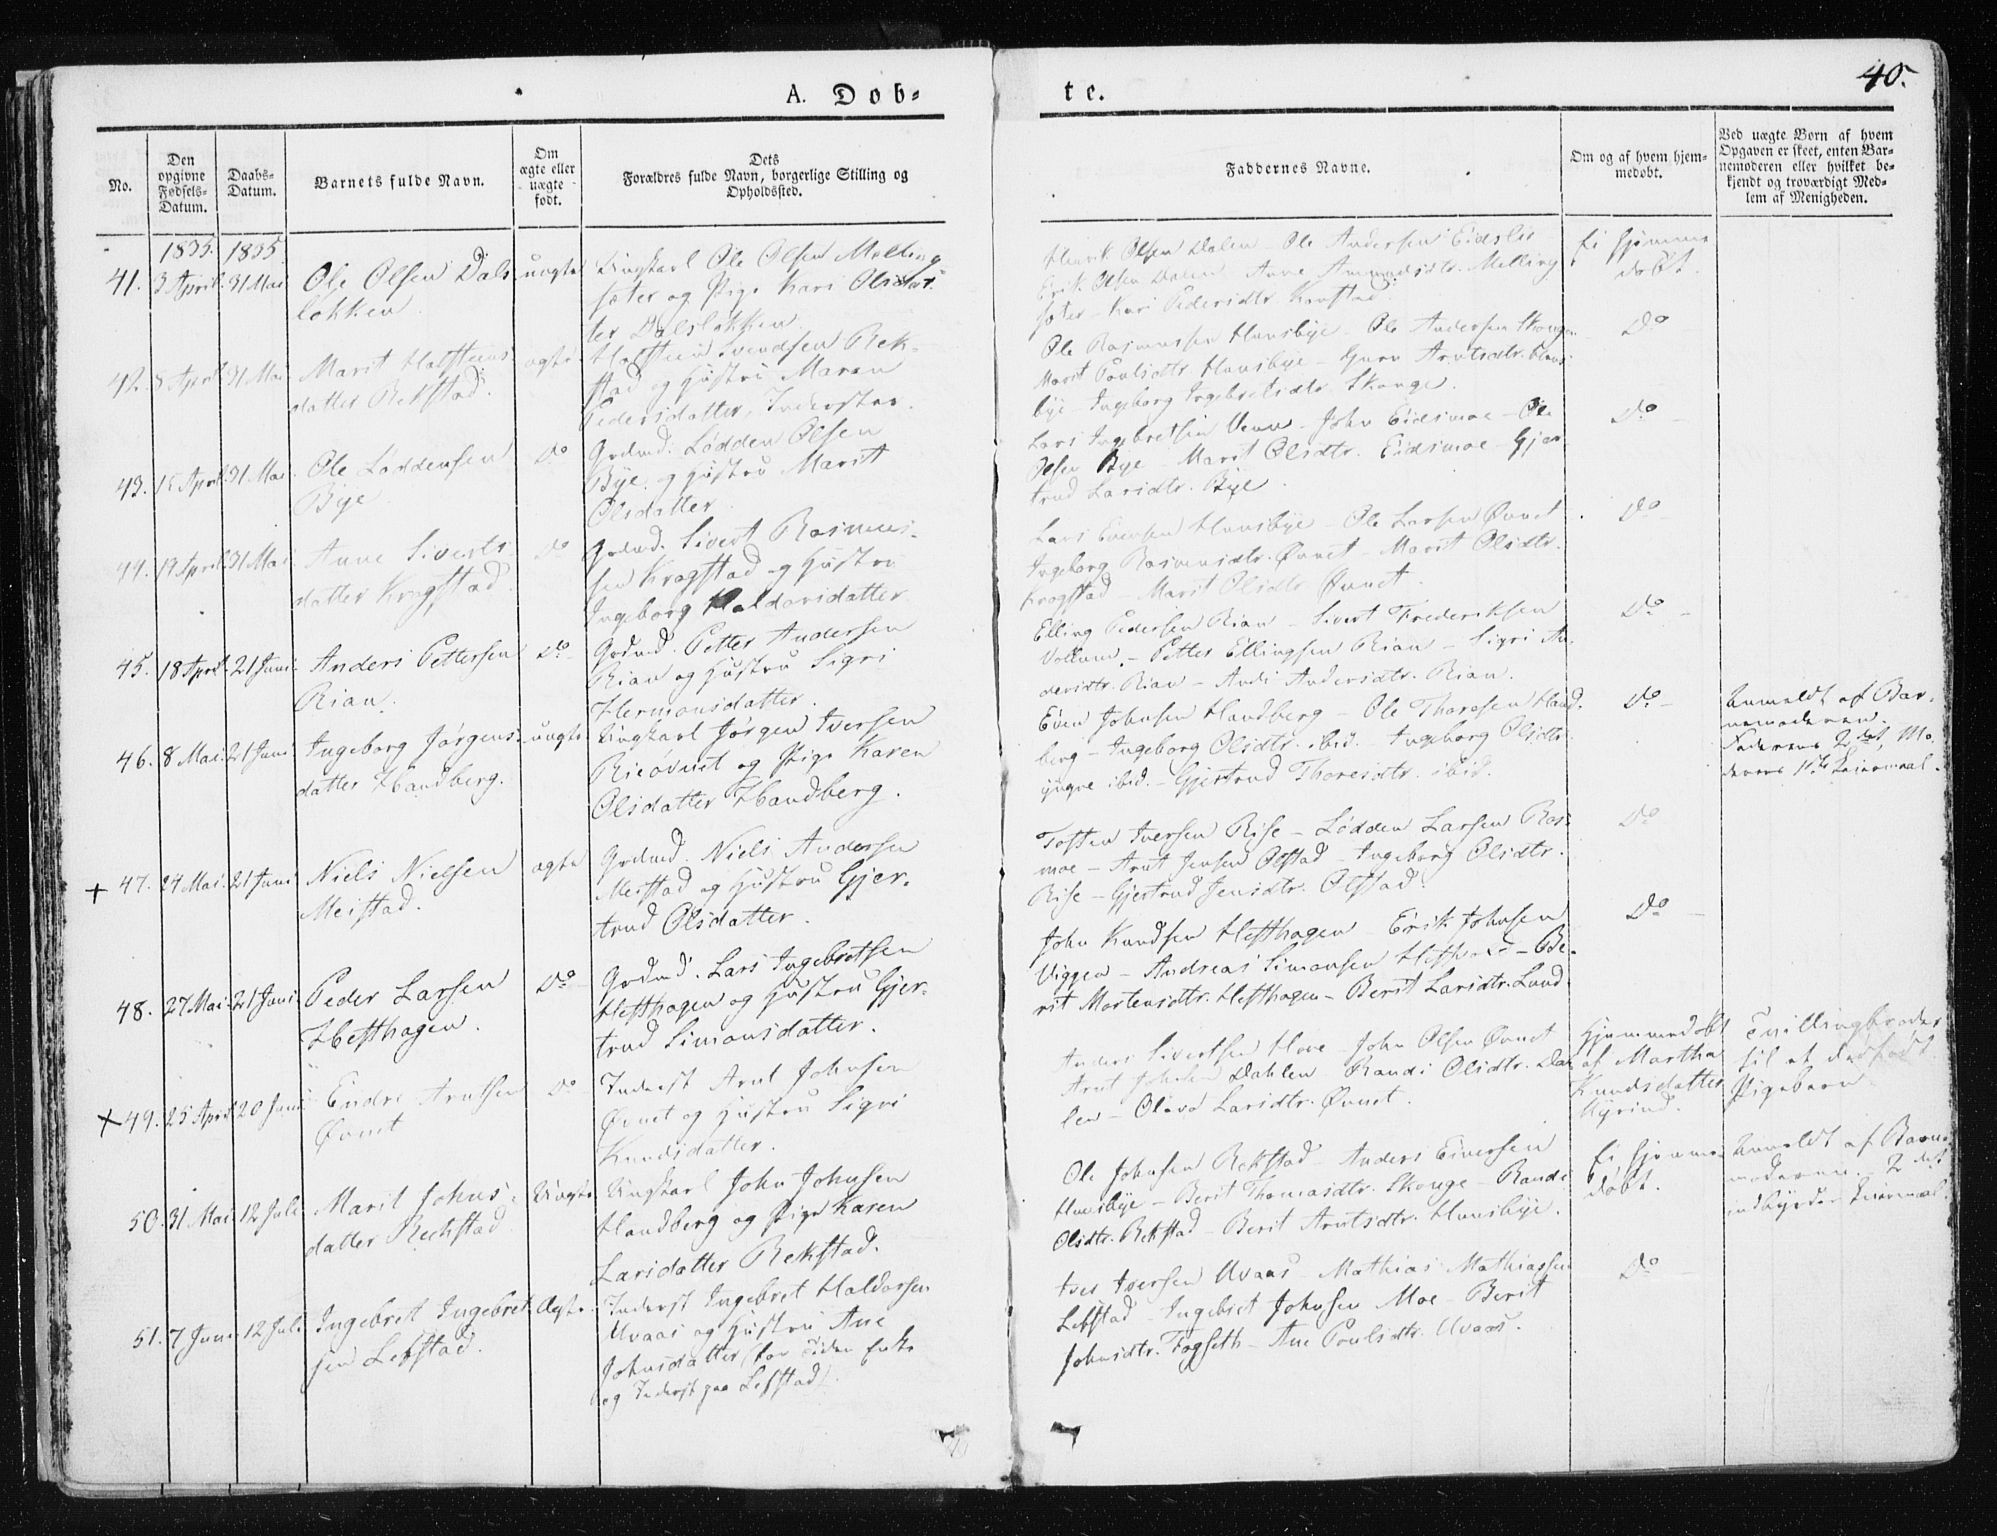 A. Døb-
te.
40.
No.
Den opgivne Fødsels-Datum.
Daabs-Datum.
Barnets fulde Navn.
Om ægte eller uægte født.
Dets Forældres fulde Navn, borgerlige Stilling og Opholdssted.
Faddernes Navne.
Om og af hvem hjem-medøbt.
Ved uægte Børn af hvem Opgaven er skeet, enten Bar-nemoderen eller hvilket be-kjendt og troværdigt Med-lem af Menigheden.
1835. 1835.
41. 3 April 31 Mai
Ole Olsen Dals
løkken
uægte
Ungkarl Ole Olsen Melling
sæter og Pige Kari Olsdat
ter Dalsløkken
Henrik Olsen Dalen - Ole Andersen Eidslie
Erik Olsen Dalen Anne Amundsdtr. Melling
sæter - Kari Pedersdtr. Kravstad.
Ei hjemme
døbt.
42. 8 April 31 Mai
Marit Halsteens
datter Rekstad.
ægte
Halsteen Svendsen Rek-
stad og Hustru Maren
Pedersdatter, Inderster.
Ole Rasmussen Hunsbye - Ole Andersen Skonge
Marit Poulsdtr Hunsbye - Guru Arntsdtr. Huns
bye - Ingeborg Ingebretsdtr. Skonge.
Do
43. 15 April 31 Mai
Ole Løddensen
Bye
Do
Grdmd. Lødden Olsen
Bye og Hustru Marit
Olsdatter
Lars Ingebretsen Venn - John Eidsmoe - Ole
Olsen Bye - Marit Olsdtr. Eidsmoe - Gjer
trud Larsdtr. Bye.
Do
44. 19 April 31 Mai
Anne Siverts
datter Kragstad
Do
Grdmd. Sivert Rasmus-
sen Kragstad og Hustru
Ingeborg Haldorsdatter
Lars Evensen Hunsbye - Ole Larsen Øvnet
Ingeborg Rasmusdtr. Øvnet - Marit Olsdtr.
Kragstad - Marit Olsdtr Øvnet.
Do
45. 18 April 21 Juni
Anders Pettersen
Rian.
Do
Grdmd. Petter Andersen
Rian og Hustru Sigri
Hermansdatter.
Elling Pedersen Rian - Sivert Frederiksen
Vollum. - Petter Ellingsen Rian - Sigri An-
dersdtr. Rian - Andi Andersdtr. Rian.
Do
46. 8 Mai. 21 Juni
Ingeborg Jørgens-
datter Handberg.
uægte
Ungkarl Jørgen Iversen
Rieøvnet og Pige Karen
Olsdatter Handberg.
Even Johnsen Handberg - Ole Thoresen Hand
berg - Ingeborg Olsdtr. ibid. - Ingeborg Olsdtr
yngre ibid. - Gjertrud Thoresdtr. ibid.
Do
Anmeldt af Bar-
nemoderen.
Faderens 2det, Mo
derens 1ste Leiermaal.
+ 47. 24 Mai. 21 Juni
Niels Nielsen
Meistad.
ægte
Grdmd. Niels Andersen
Meistad og Hustru Gjer-
trud Olsdatter.
Tosten Iversen Rise - Lødden Larsen Ros-
moe - Arnt Jensen Olstad - Ingeborg Olsdtr.
Rise - Gjertrud Jensdtr. Olstad.
Do
48. 27 Mai. 21 Juni.
Peder Larsen
Hesthagen.
Do
Grdmd. Lars Ingebretsen
Hesthagen og Hustru Gjer-
trud Simonsdatter.
John Knudsen Hesthagen - Erik Johnsen
Viggen - Andreas Simonsen - Be-
rit Mortensdtr. Hesthagen - Berit Larsdtr. Lund.
Do
+ 49. 25 April 20 Juni
Endre Arntsen
Øvnet
Do
Inderst Arnt Johnsen
Øvnet og Hustru Sigri
Knudsdatter.
Anders Sivertsen Hove - John Olsen Øvnet
Arnt Johnsen Dahlen - Randi Olsdtr. Dah
len - Olava Larsdtr. Øvnet.
Hjemmedøbt
af Martha
Knudsdatter
Tvillingbroder
til et dødfødt
Pigebarn
50. 31 Mai 12 Juli
Marit Johns-
datter Reckstad
Uægte
Ungkarl John Johnsen
Handberg og Pige Karen
Larsdatter Rekstad.
Ole Johnsen Rekstad - Anders Einersen
Hunsbye - Berit Thomasdtr. Skonge - Randi
Olsdtr. Rekstad - Berit Arntsdtr. Hunsbye.
Ei hjemme-
døbt.
Anmeldt af Barne-
moderen. 2det
indbyrdes Leiermaal.
51. 7 Juni 12 Juli
Ingebret Ingebret-
sen Lefstad.
Ægte
Inderst Ingebret Haldorsen
Uvaas og Hustru Ane
Johnsdatter (for Tiden
og Inderst paa Lefstad).
Iver Iversen Uvaas - Mathias Mathiassen
Lefstad - Ingebret Johnsen Moe - Berit
Johnsdtr. Fagseth - Ane Poulsdtr. Uvaas.
Do